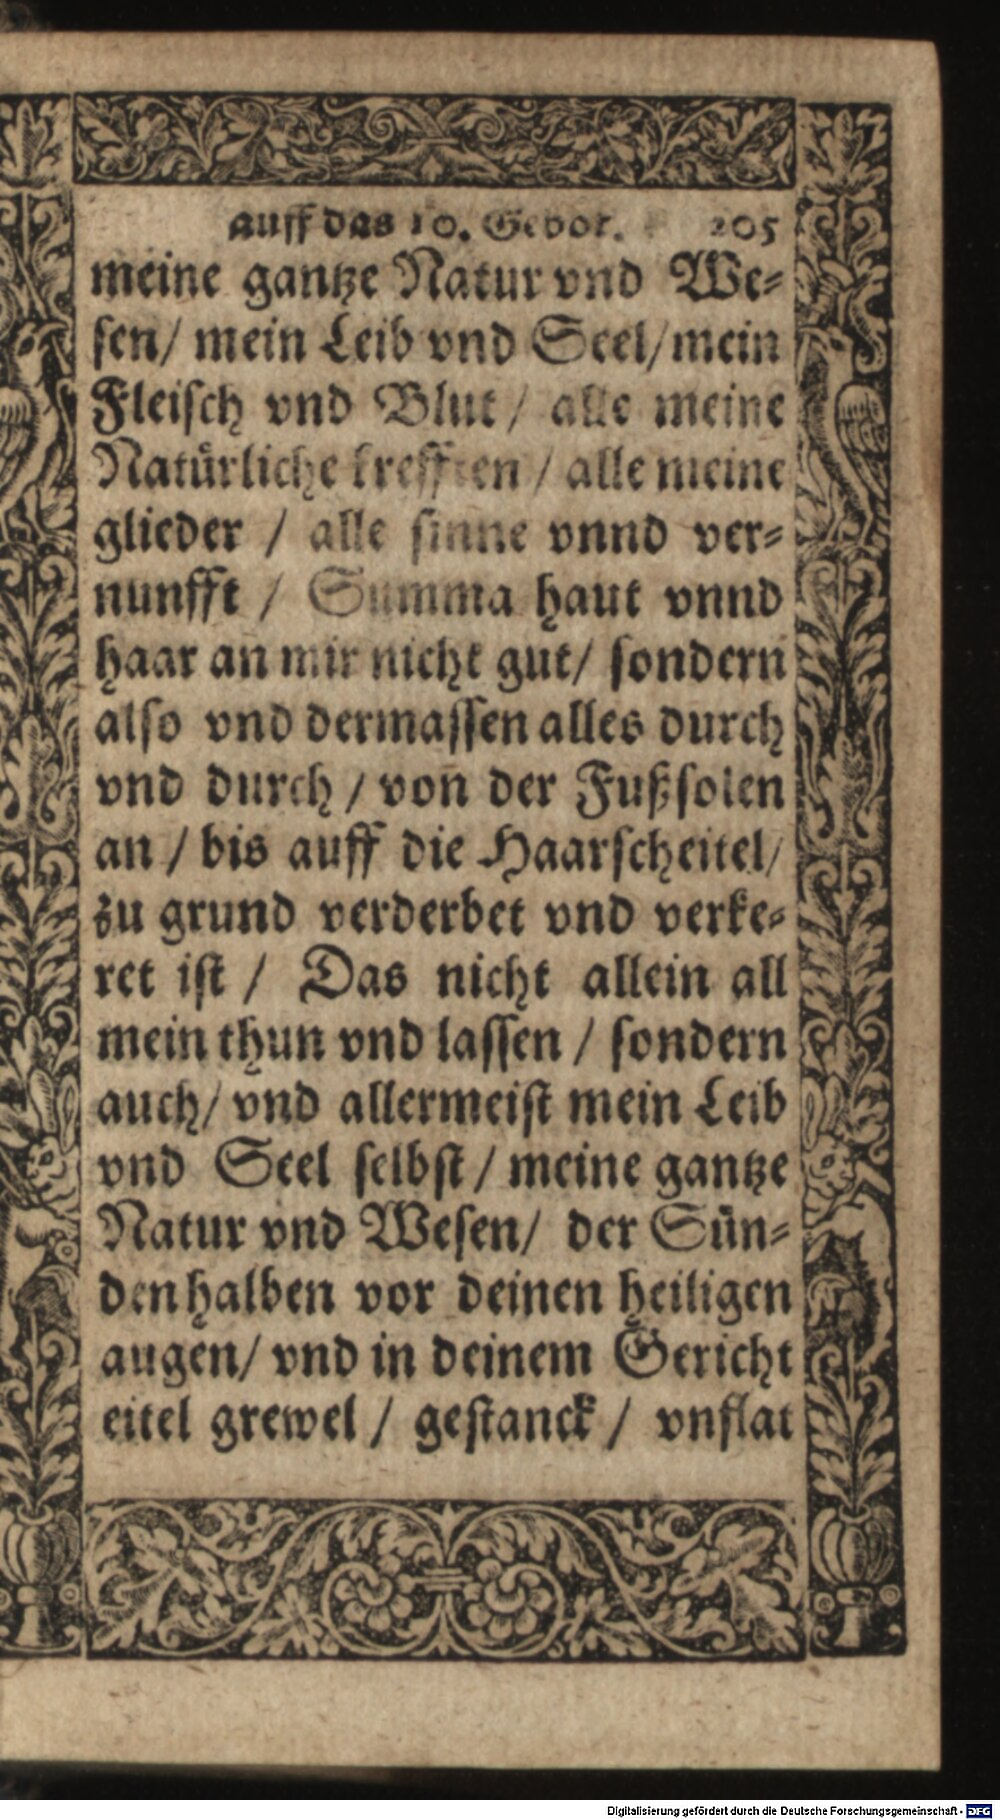 auff das 10. Gebot. 205
meine gantze Natur vnd We⸗
sen/ mein Leib vnd Seel/ mein
Fleisch vnd Blut/ alle meine
Natürliche krefften/ alle meine
glieder / alle sinne vnnd ver⸗
nunfft / Summa haut vnnd
haar an mir nicht gut/ sondern
also vnd dermassen alles durch
vnd durch / von der Fußsolen
an / bis auff die Haarscheitel/
zu grund verderbet vnd verke⸗
ret ist / Das nicht allein all
mein thun vnd lassen / sondern
auch/ vnd allermeist mein Leib
vnd Seel selbst / meine gantze
Natur vnd Wesen/ der Sün⸗
den halben vor deinen heiligen
augen/ vnd in deinem Gericht
eitel grewel / gestanck / vnflat
Digitalisierung gefördert durch die Deutsche Forschungsgemeinschaft - DFG